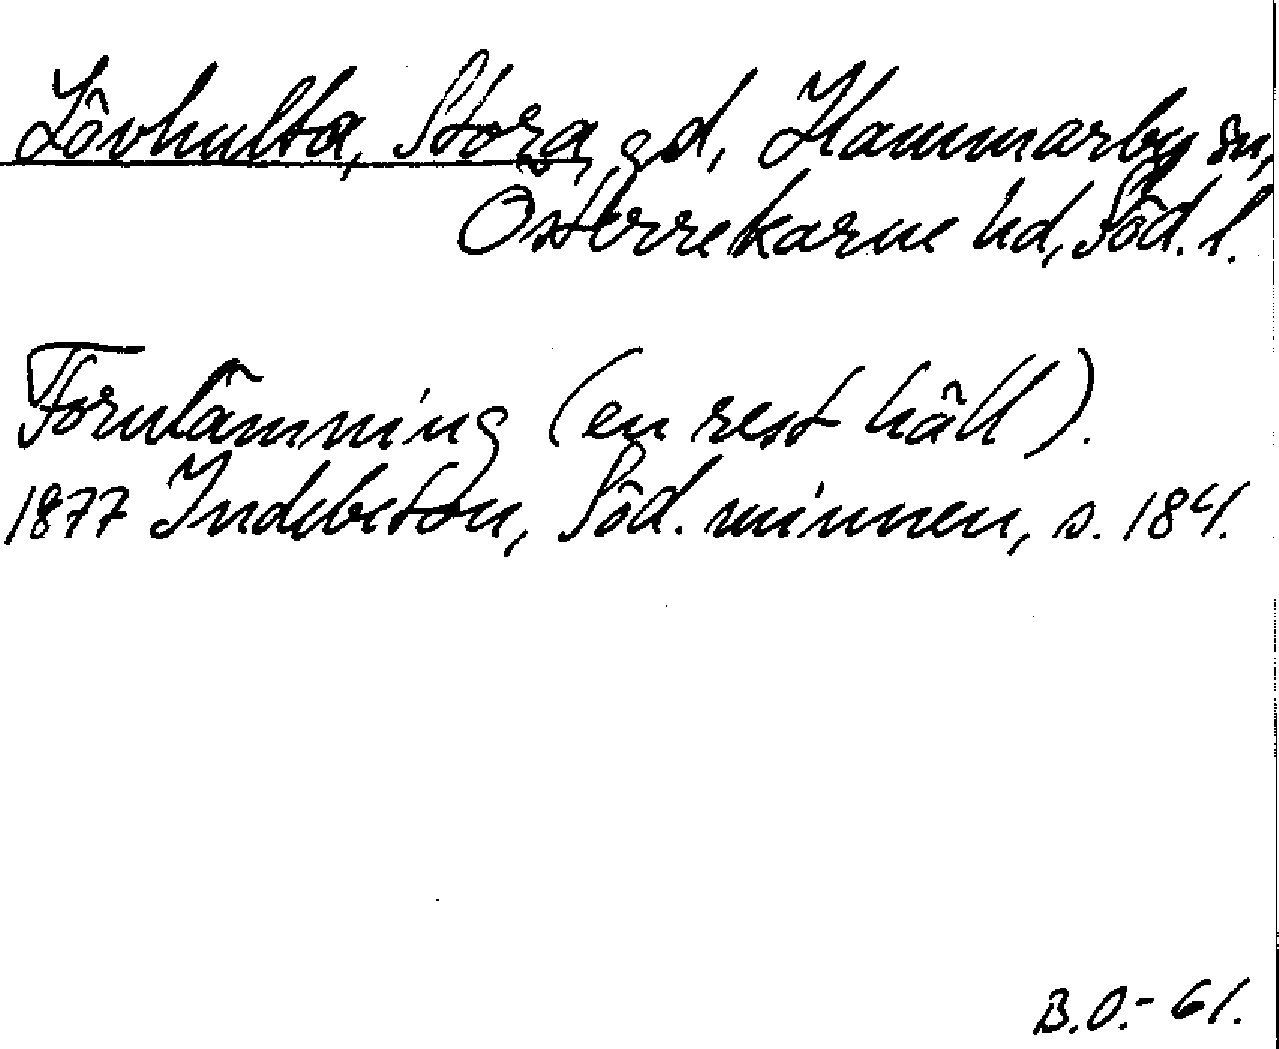 Lövhulta, Stora, gd, Hammarby sn,
Österrekarne hd, Söd. l.
Fornlämning (en rest häll).
1877 Indebetou, Söd. minnen, s. 184.
B.O.- 61.